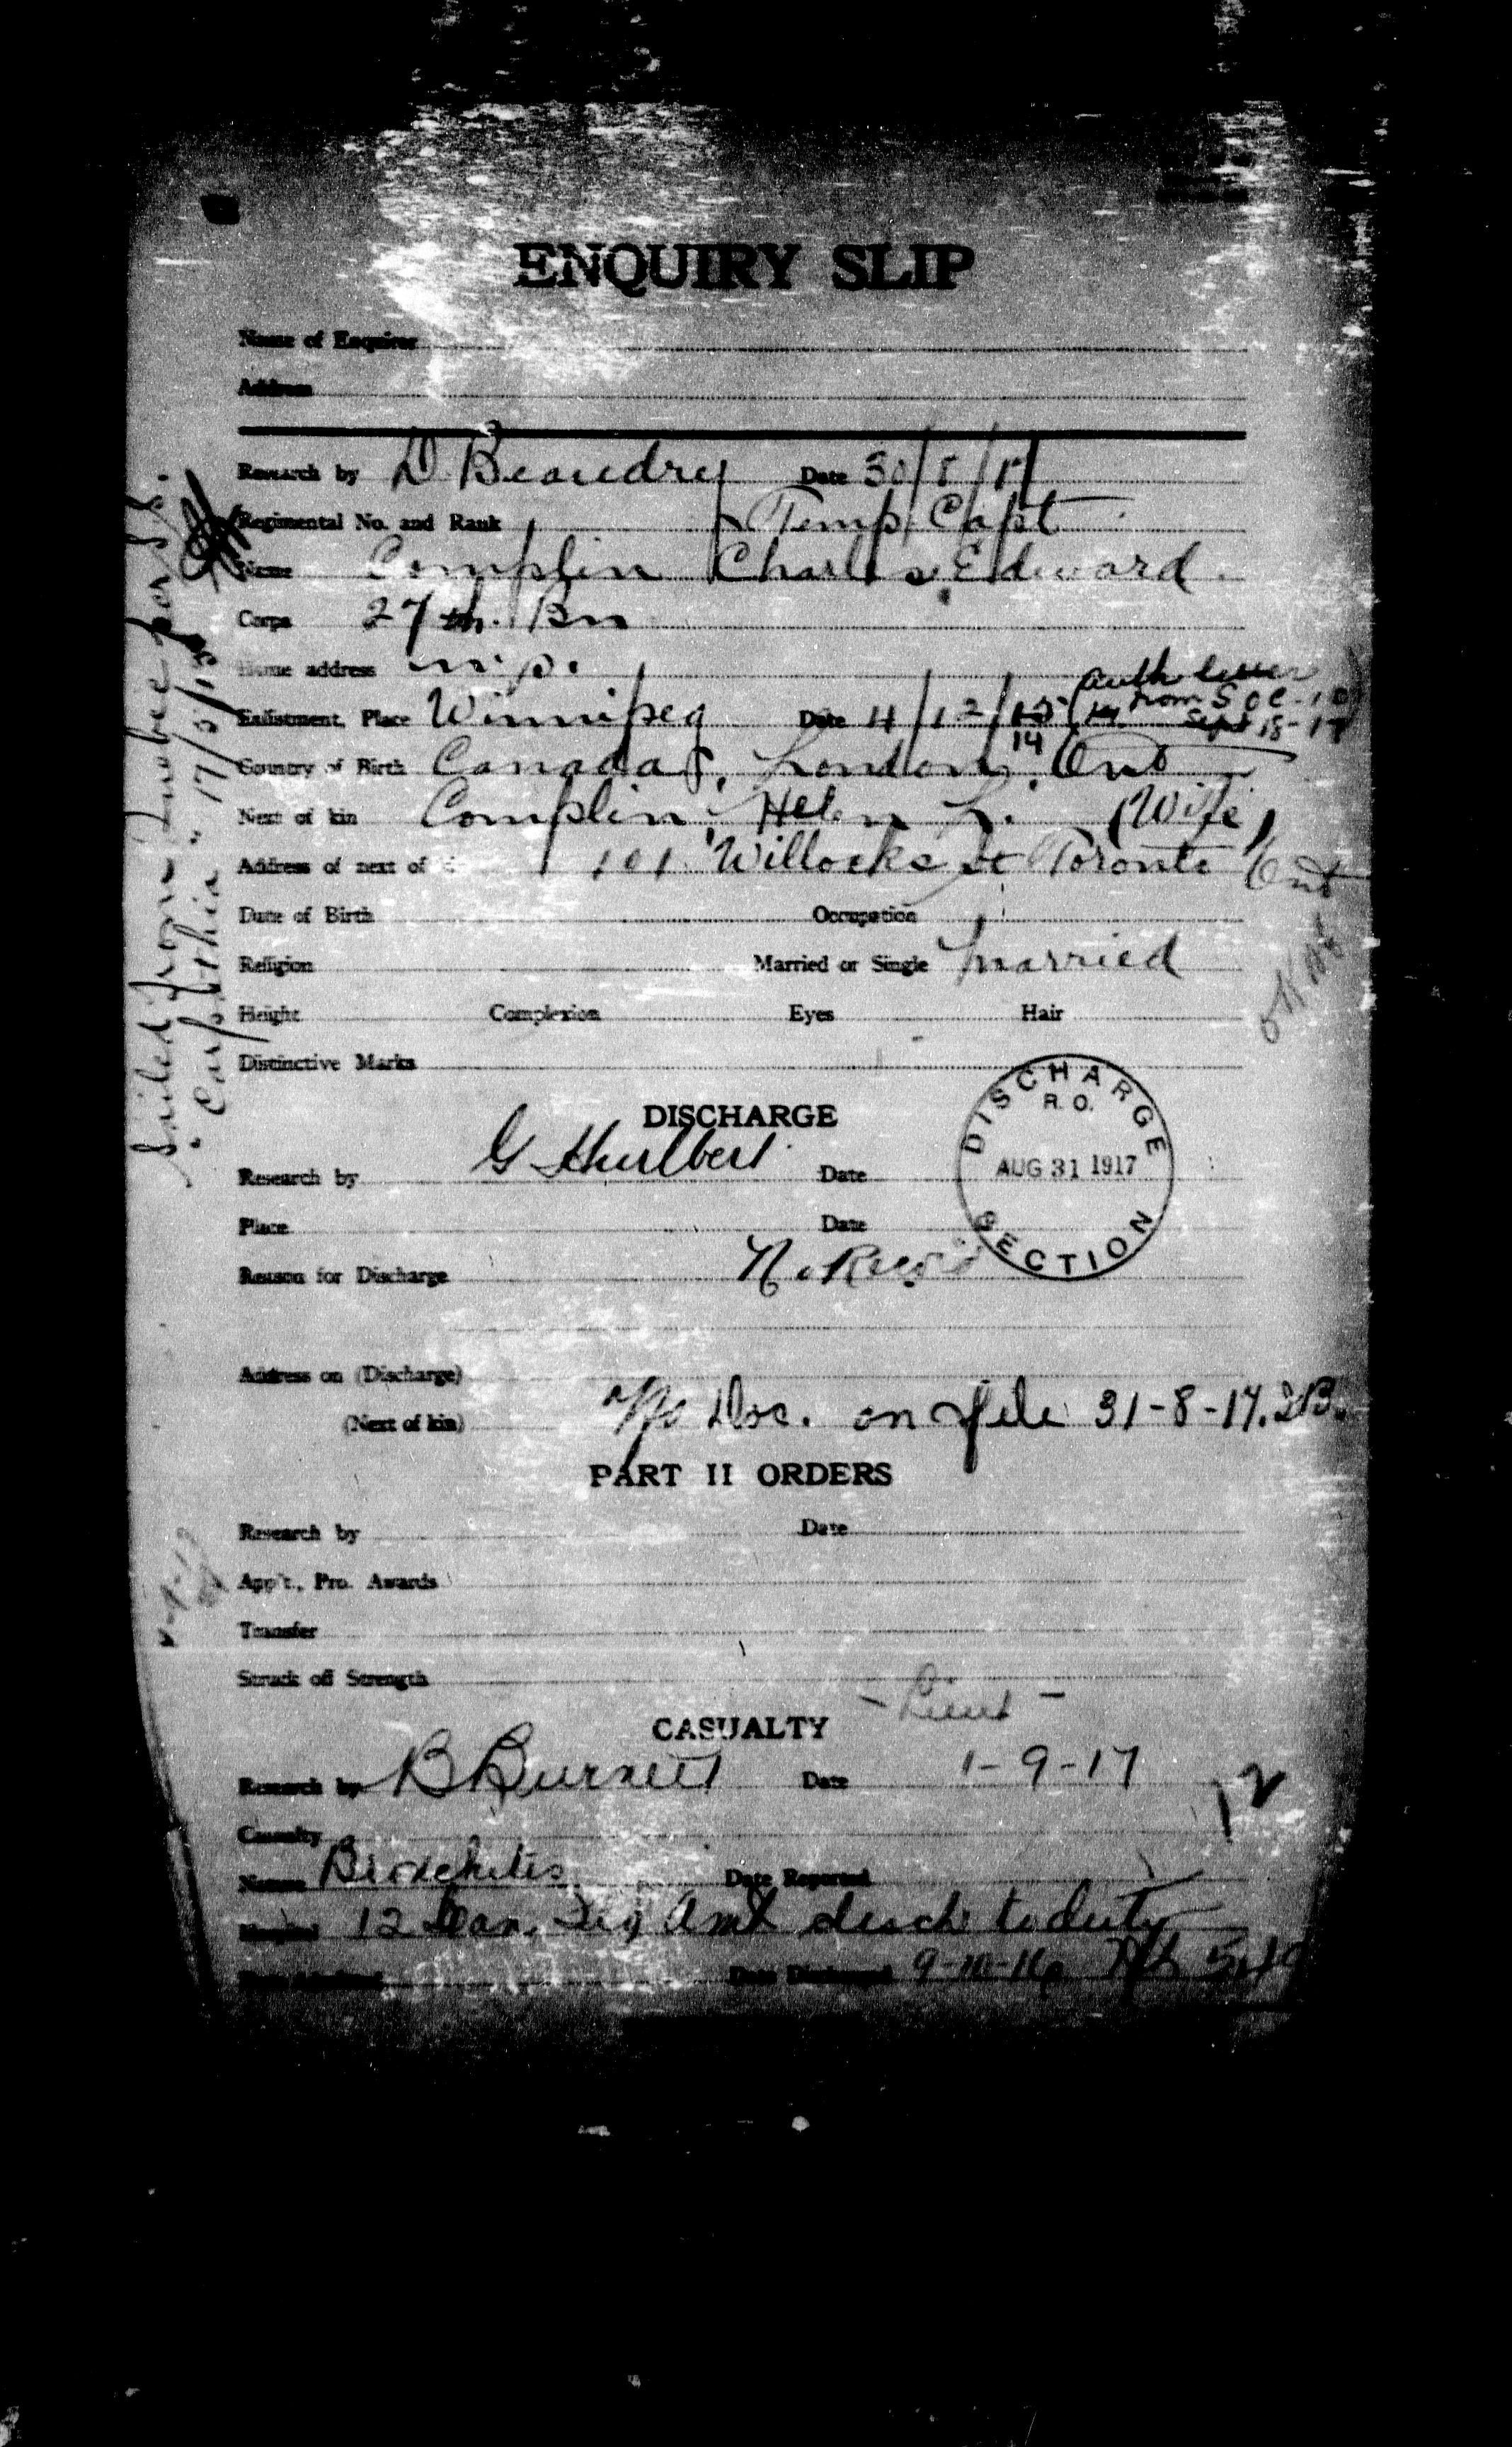 ENQUIRY SLIP
Name of Enquirer
Address
Research by D. Beaudry Date 30/8/17
Regimental No. and Rank Temp. Capt
Name Complin Charles Edward.
Corps 27th. Bn
Home address n.p.
Enlistment, Place Winnipeg Date 4/12/15 14 auth letter
from S O C - 10
Sept 18 - 17
Country of Birth Canada, London, Ont
Next of kin Complin, Helen L. (Wife)
Address of next of 101 Willocks St Toronto Ont
Date of Birth Occupation
Religion Married or Single Married
Height Complexion Eyes Hair
Distinctive Marks
Sailed from Quebec per S.S.
"Carpathia" 17/5/15
DISCHARGE
Research by G Hurlbert Date
Place Date
Reason for Discharge N. Rec
DISCHARGE
R. O.
AUG 31 1917
SECTION
Address on (Discharge)
(Next of kin) No Doc. on file 31-8-17. B.
PART II ORDERS
Research by Date
App't., Pro. Awards
Transfer
Struck off Strength
- Lieut -
CASUALTY
Research by B Burnett Date 1-9-17
12
Casualty
Nature Bronchitis Date Reported
Hospital 12 Can. Fld Amb disch to duty
Date Admitted Date Discharged 9-10-16